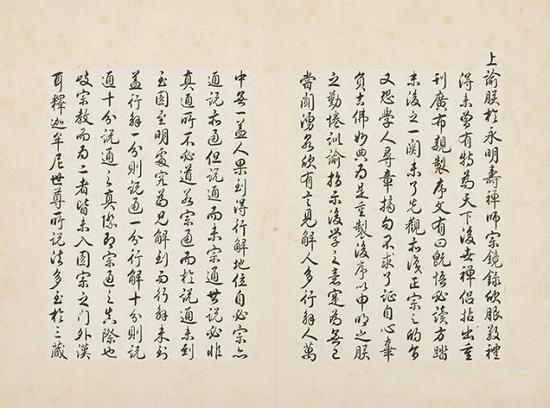 上諭朕於永明壽禪師宗鏡錄欣服敬禮
得未曾有特為天下後世禪侶拈出重
刊廣布親製序文有曰既悟必讀方踏
末後之一關未了先觀正宗之的
又恐學人尋章摘句不求了證自心辜
負古佛妙典為是重製後序以申明之朕
之勤惓訓諭指示後學之意寔為無已
嘗聞湧泉欣有言見解人多行解人萬
中無一蓋人果到得行解地位自必宗亦
通說亦通但說通而未宗通其說必非
真通所不必道若宗通而於說通未到
至圓至明處究為見解到而行解未到
蓋行解一分則說通一分行解十分則說
通十分說通之真際即宗通之真際也
歧宗教而為二者皆未入圓宗之門外漢
耳釋迦牟尼世尊所說法多至於三藏